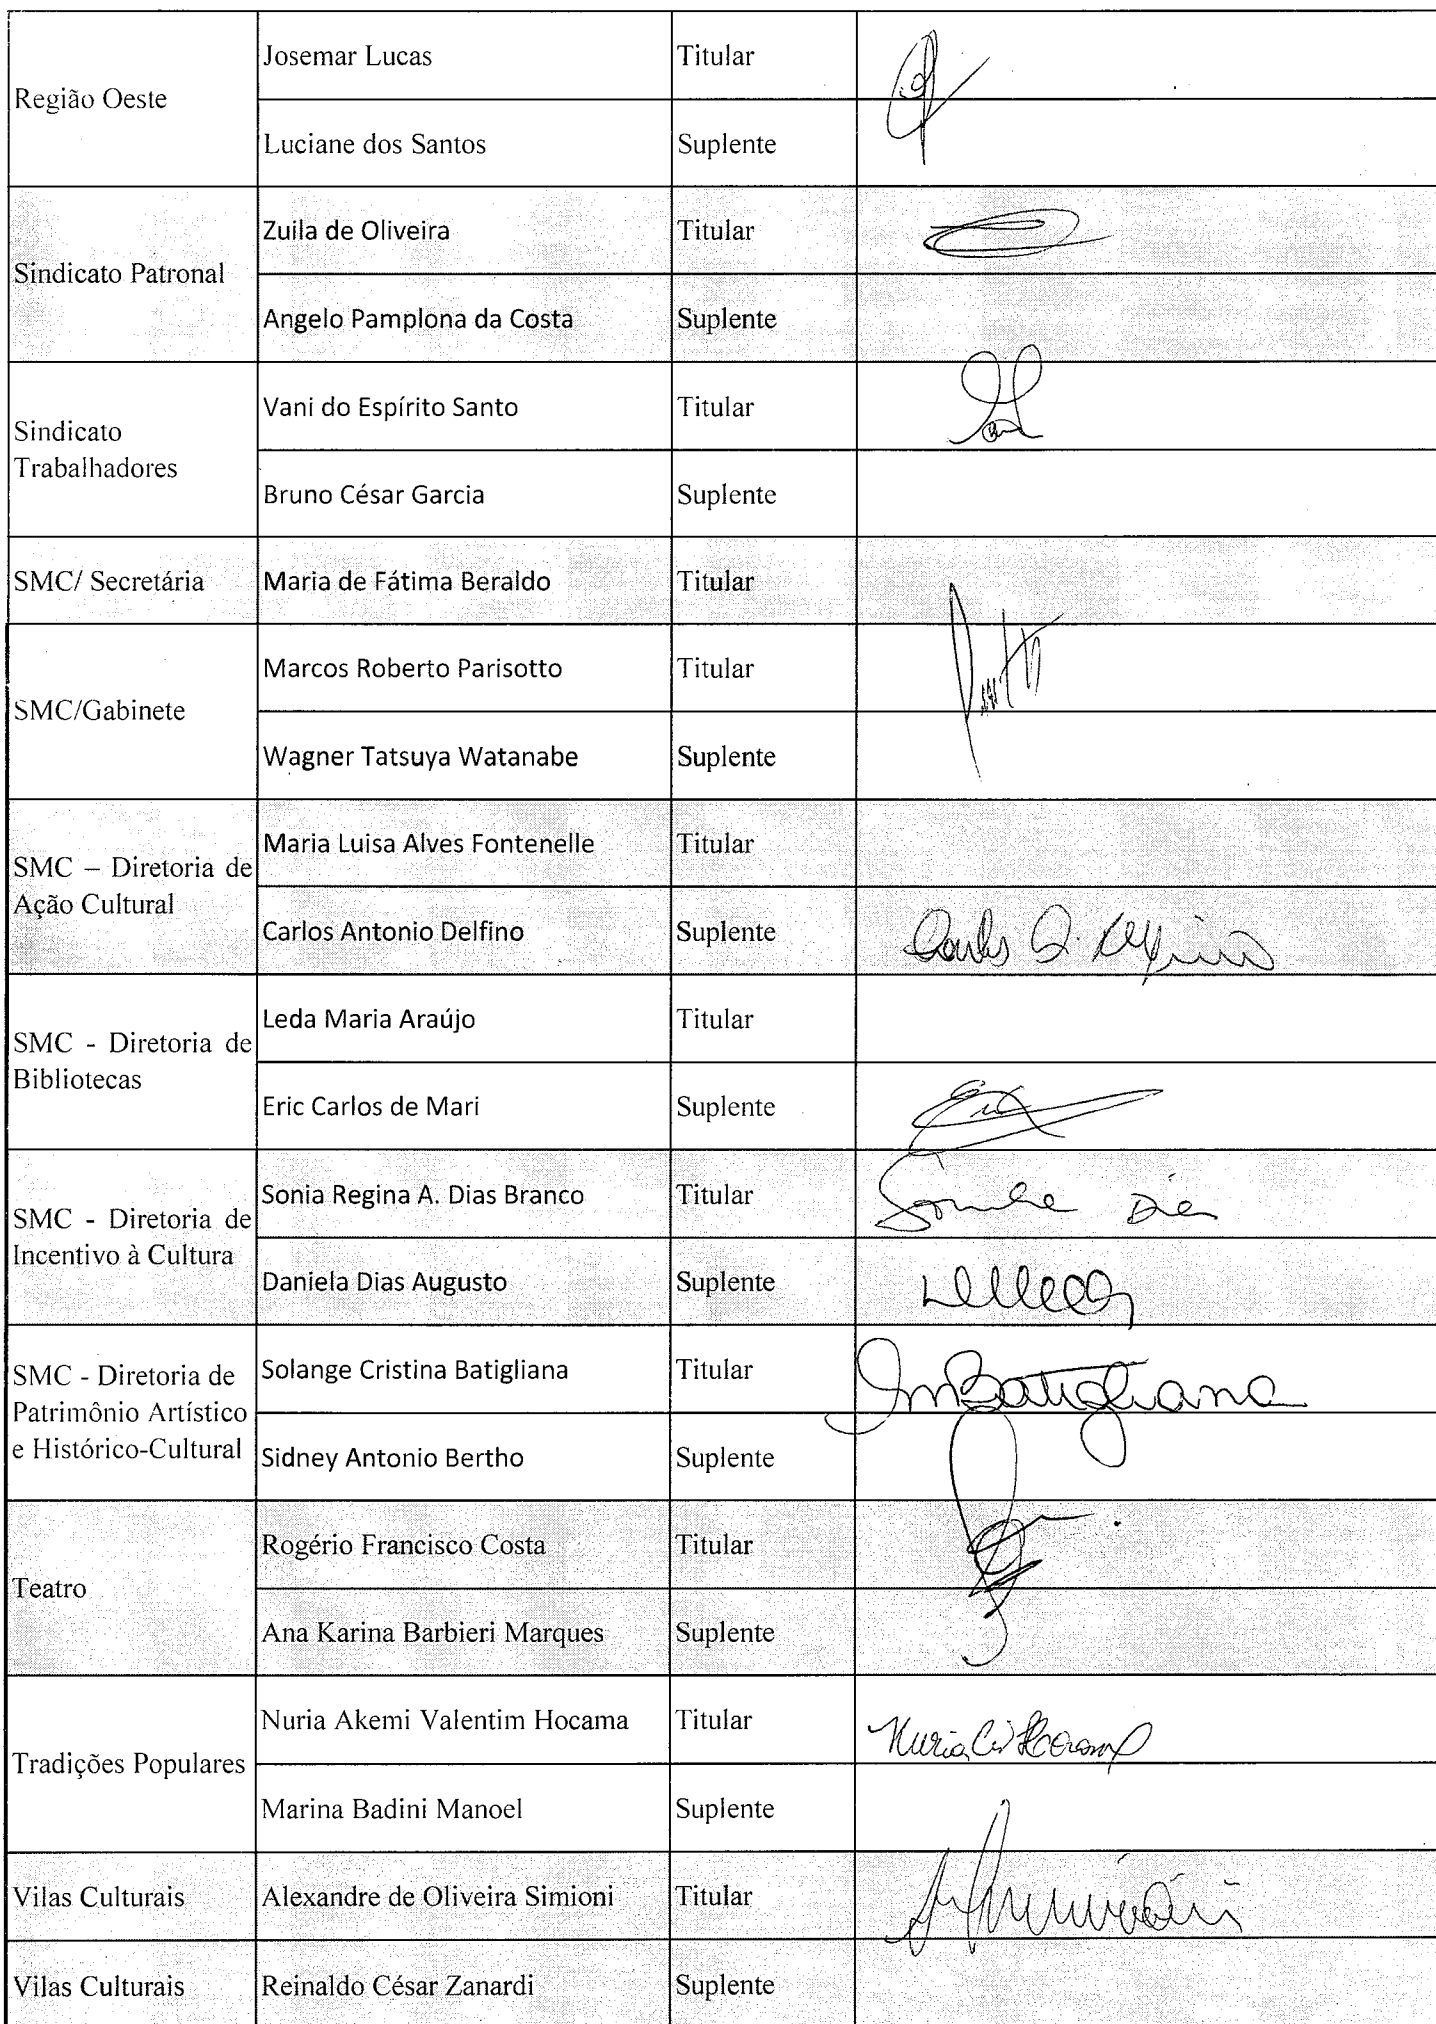 Região Oeste
Josemar Lucas Titular
Luciane dos Santos Suplente
Sindicato Patronal
Zuila de Oliveira Titular
Angelo Pamplona da Costa Suplente
Sindicato
Trabalhadores
Vani do Espírito Santo Titular
Bruno César Garcia Suplente
SMC/ Secretária Maria de Fátima Beraldo Titular
SMC/Gabinete
Marcos Roberto Parisotto Titular
Wagner Tatsuya Watanabe Suplente
SMC – Diretoria de
Ação Cultural
Maria Luisa Alves Fontenelle Titular
Carlos Antonio Delfino Suplente Carlos A. Delfino
SMC - Diretoria de
Bibliotecas
Leda Maria Araújo Titular
Eric Carlos de Mari Suplente Eric
SMC - Diretoria de
Incentivo à Cultura
Sonia Regina A. Dias Branco Titular
Daniela Dias Augusto Suplente
SMC - Diretoria de
Patrimônio Artístico
e Histórico-Cultural
Solange Cristina Batigliana Titular Batigliana
Sidney Antonio Bertho Suplente
Teatro
Rogério Francisco Costa Titular
Ana Karina Barbieri Marques Suplente
Tradições Populares
Nuria Akemi Valentim Hocama Titular Nuria
Marina Badini Manoel Suplente
Vilas Culturais Alexandre de Oliveira Simioni Titular
Vilas Culturais Reinaldo César Zanardi Suplente